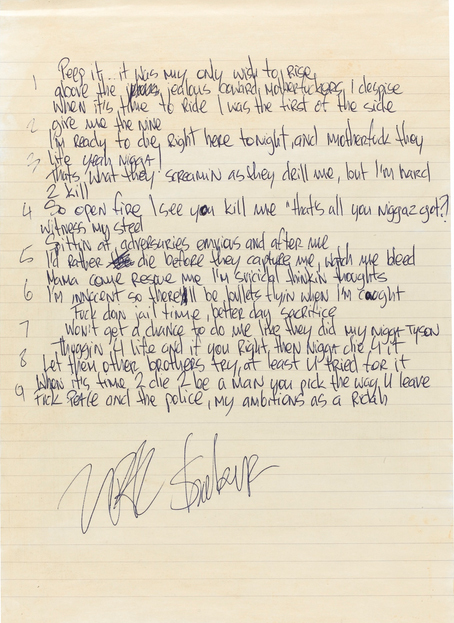 Peep it.. it was my only wish to rise
1 above the jealous coward motherfuckers I despise
When it's time to ride I was the first of the side
2 give me the nine
I'm ready to die, Right here tonight, and motherfuck they
3 life yeah nigga!
That's what they screamin as they drill me, but I'm hard
2 kill
4 So open fire I see you kill me "that's all you niggaz got?
witness my steel
Spittin at, adversaries envious and after me
5 I'd rather die before they capture me, watch me bleed
Mama come rescue me I'm suicidal thinkin thoughts
6 I'm innocent so there'll be bullets flyin when I'm caught
Fuck doin jail time, better day sacrifice
7 Won't get a chance to do me like they did my nigga Tyson
Thuggin 4 life and if you Right, then Nigga die 4 it
8 Let them other brothers try, at least U tried for it
9 When it's time 2 die 2 be a man you pick the way U leave
Fuck Peace and the police, my ambitions as a Ridah